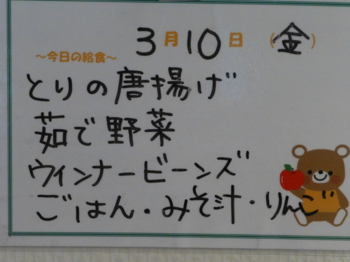 3月10日（金）
～今日の給食～
とりの唐揚げ
茹で野菜
ウィンナービーンズ
ごはん・みそ汁・りんご